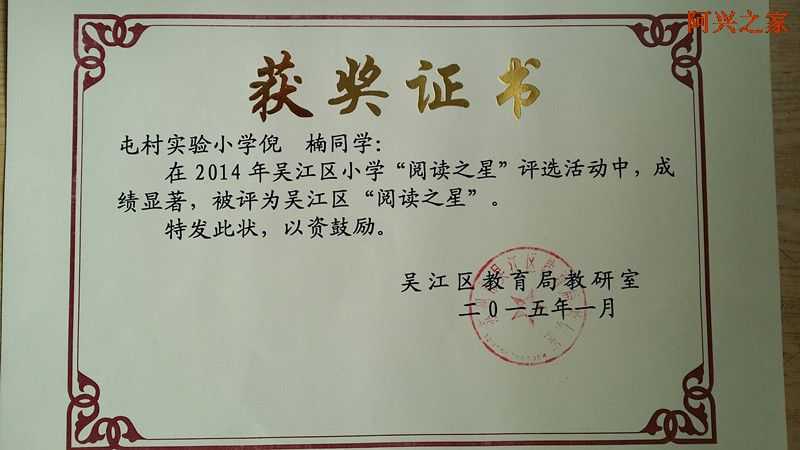 阿兴之家
获奖证书
屯村实验小学倪 楠同学：
在2014年吴江区小学“阅读之星”评选活动中，成
绩显著，被评为吴江区“阅读之星”。
特发此状，以资鼓励。
吴江区教育局教研室
二〇一五年一月